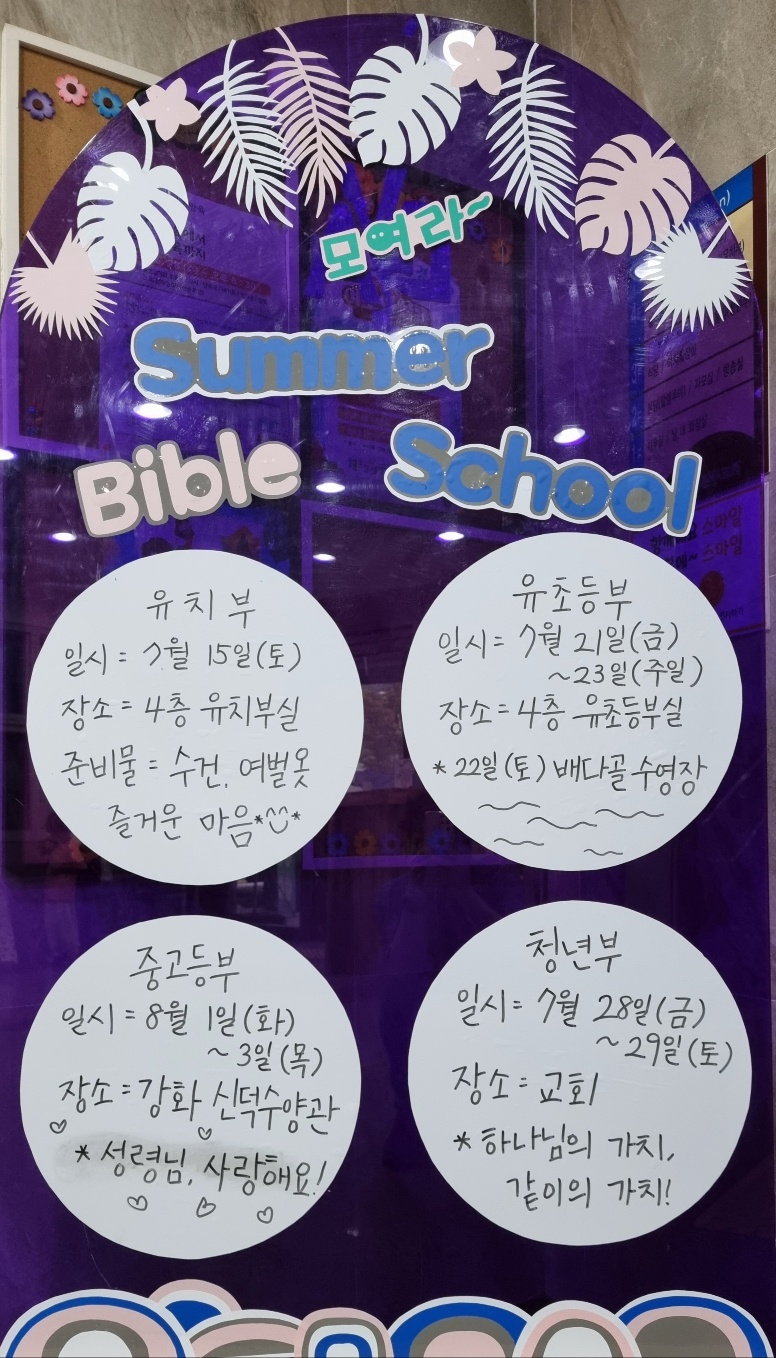 모여라~
Summer
Bible School
유치부
일시 = 7월 15일(토)
장소 = 4층 유치부실
준비물 = 수건, 여벌옷
즐거운 마음
유초등부
일시 = 7월 21일(금)
~23일(주일)
장소 = 4층 유초등부실
* 22일(토) 배다골 수영장
중고등부
일시 = 8월 1일(화)
~ 3일(목)
장소 = 강화 신덕수양관
* 성령님, 사랑해요!
청년부
일시 = 7월 28일(금)
~ 29일(토)
장소 = 교회
* 하나님의 가치,
같이의 가치!